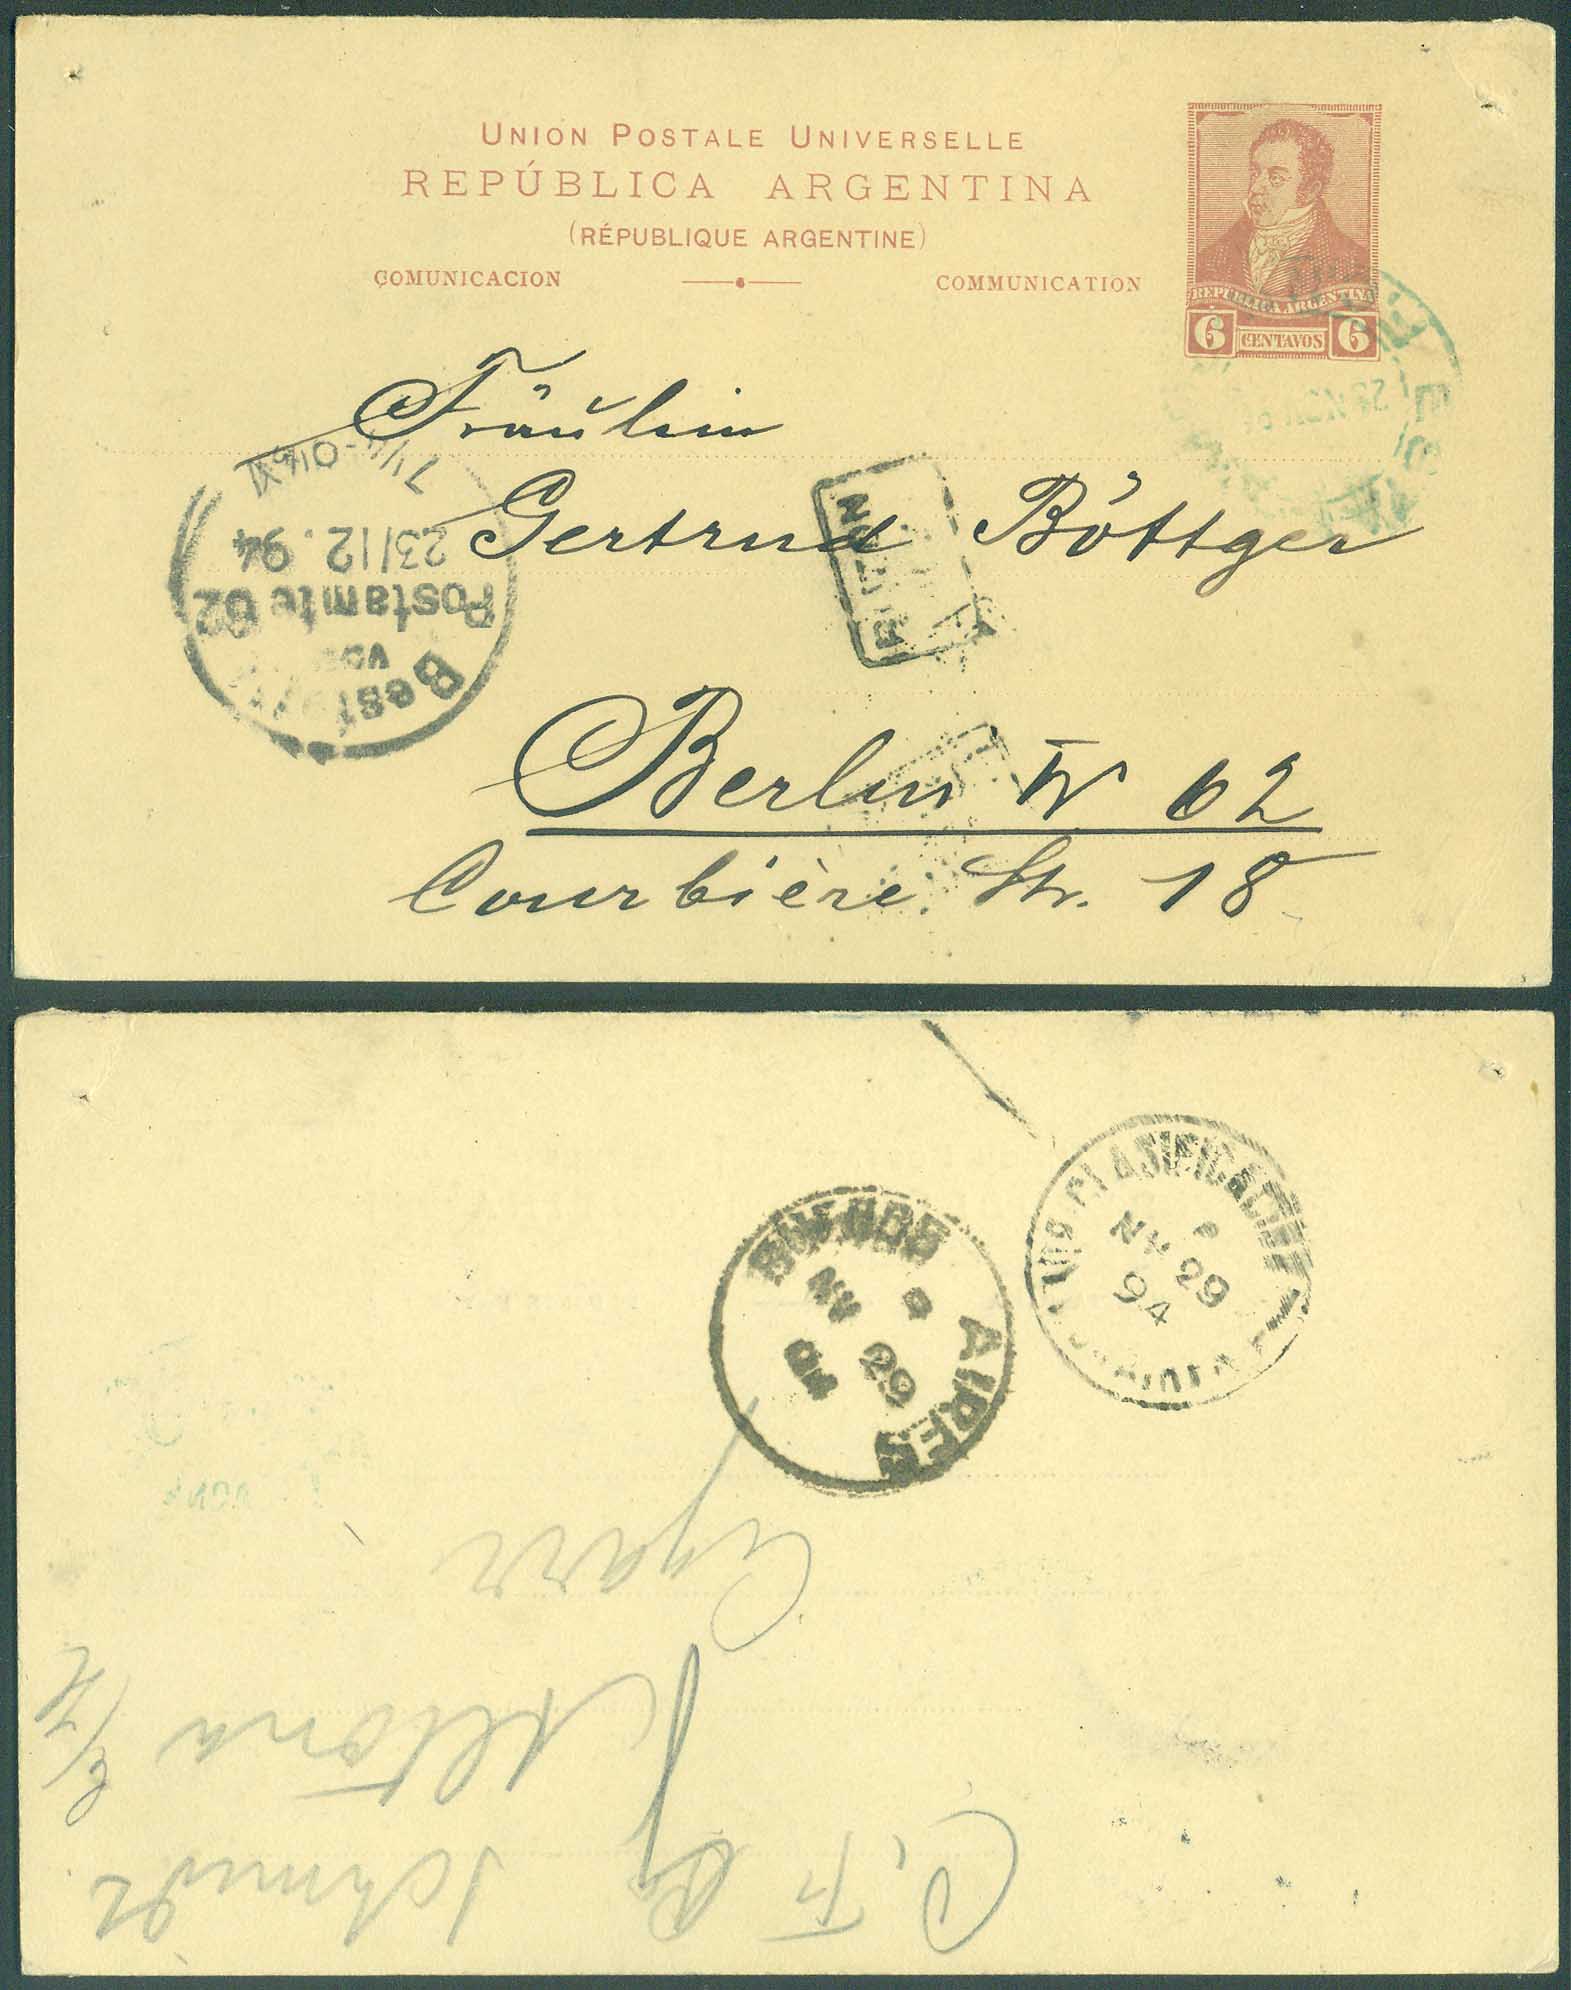 UNION POSTALE UNIVERSELLE
REPÚBLICA ARGENTINA
(RÉPUBLIQUE ARGENTINE)
COMUNICACION COMMUNICATION
REPÚBLICA ARGENTINA
6 CENTAVOS 6
Fräulein
Gertrud Böttger
Berlin W 62
Courbière Str. 18
Bestellt
vom
Postamte 62
23/12.94
BUENOS AIRES
NV 29
94
CLASIFICACION
NV 29
94
C. F. Schmidt
Altona
Cigarr